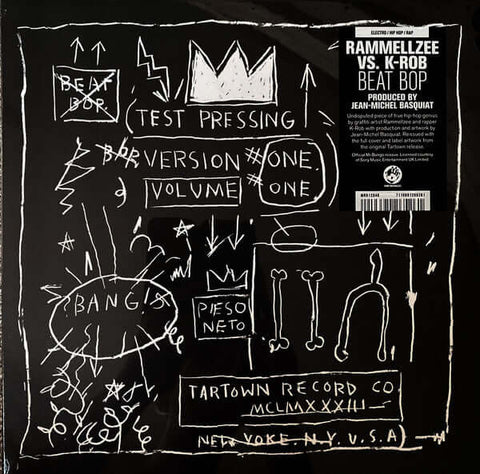 ELECTRO / HIP HOP / RAP
RAMMELLZEE
VS. K-ROB
BEAT BOP
PRODUCED BY
JEAN-MICHEL BASQUIAT
Undisputed piece of true hip-hop genius
by graffiti artist Rammellzee and rapper
K-Rob with production and artwork by
Jean-Michel Basquiat. Reissued with
the full cover and label artwork from
the original Tartown release.
Official Mr Bongo reissue. Licensed courtesy
of Sony Music Entertainment UK Limited
BEAT
BOP
(TEST PRESSING
VERSION #ONE
VOLUME #ONE
BANG!
PESO
NETO
TARTOWN RECORD CO.
MCLMXXXIII
NEW YOKE. N.Y. U.S.A)